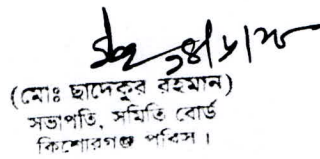 ১৪/৮/২৫
(মোঃ ছাদেকুর রহমান)
সভাপতি, সমিতি বোর্ড
কিশোরগঞ্জ পবিস।